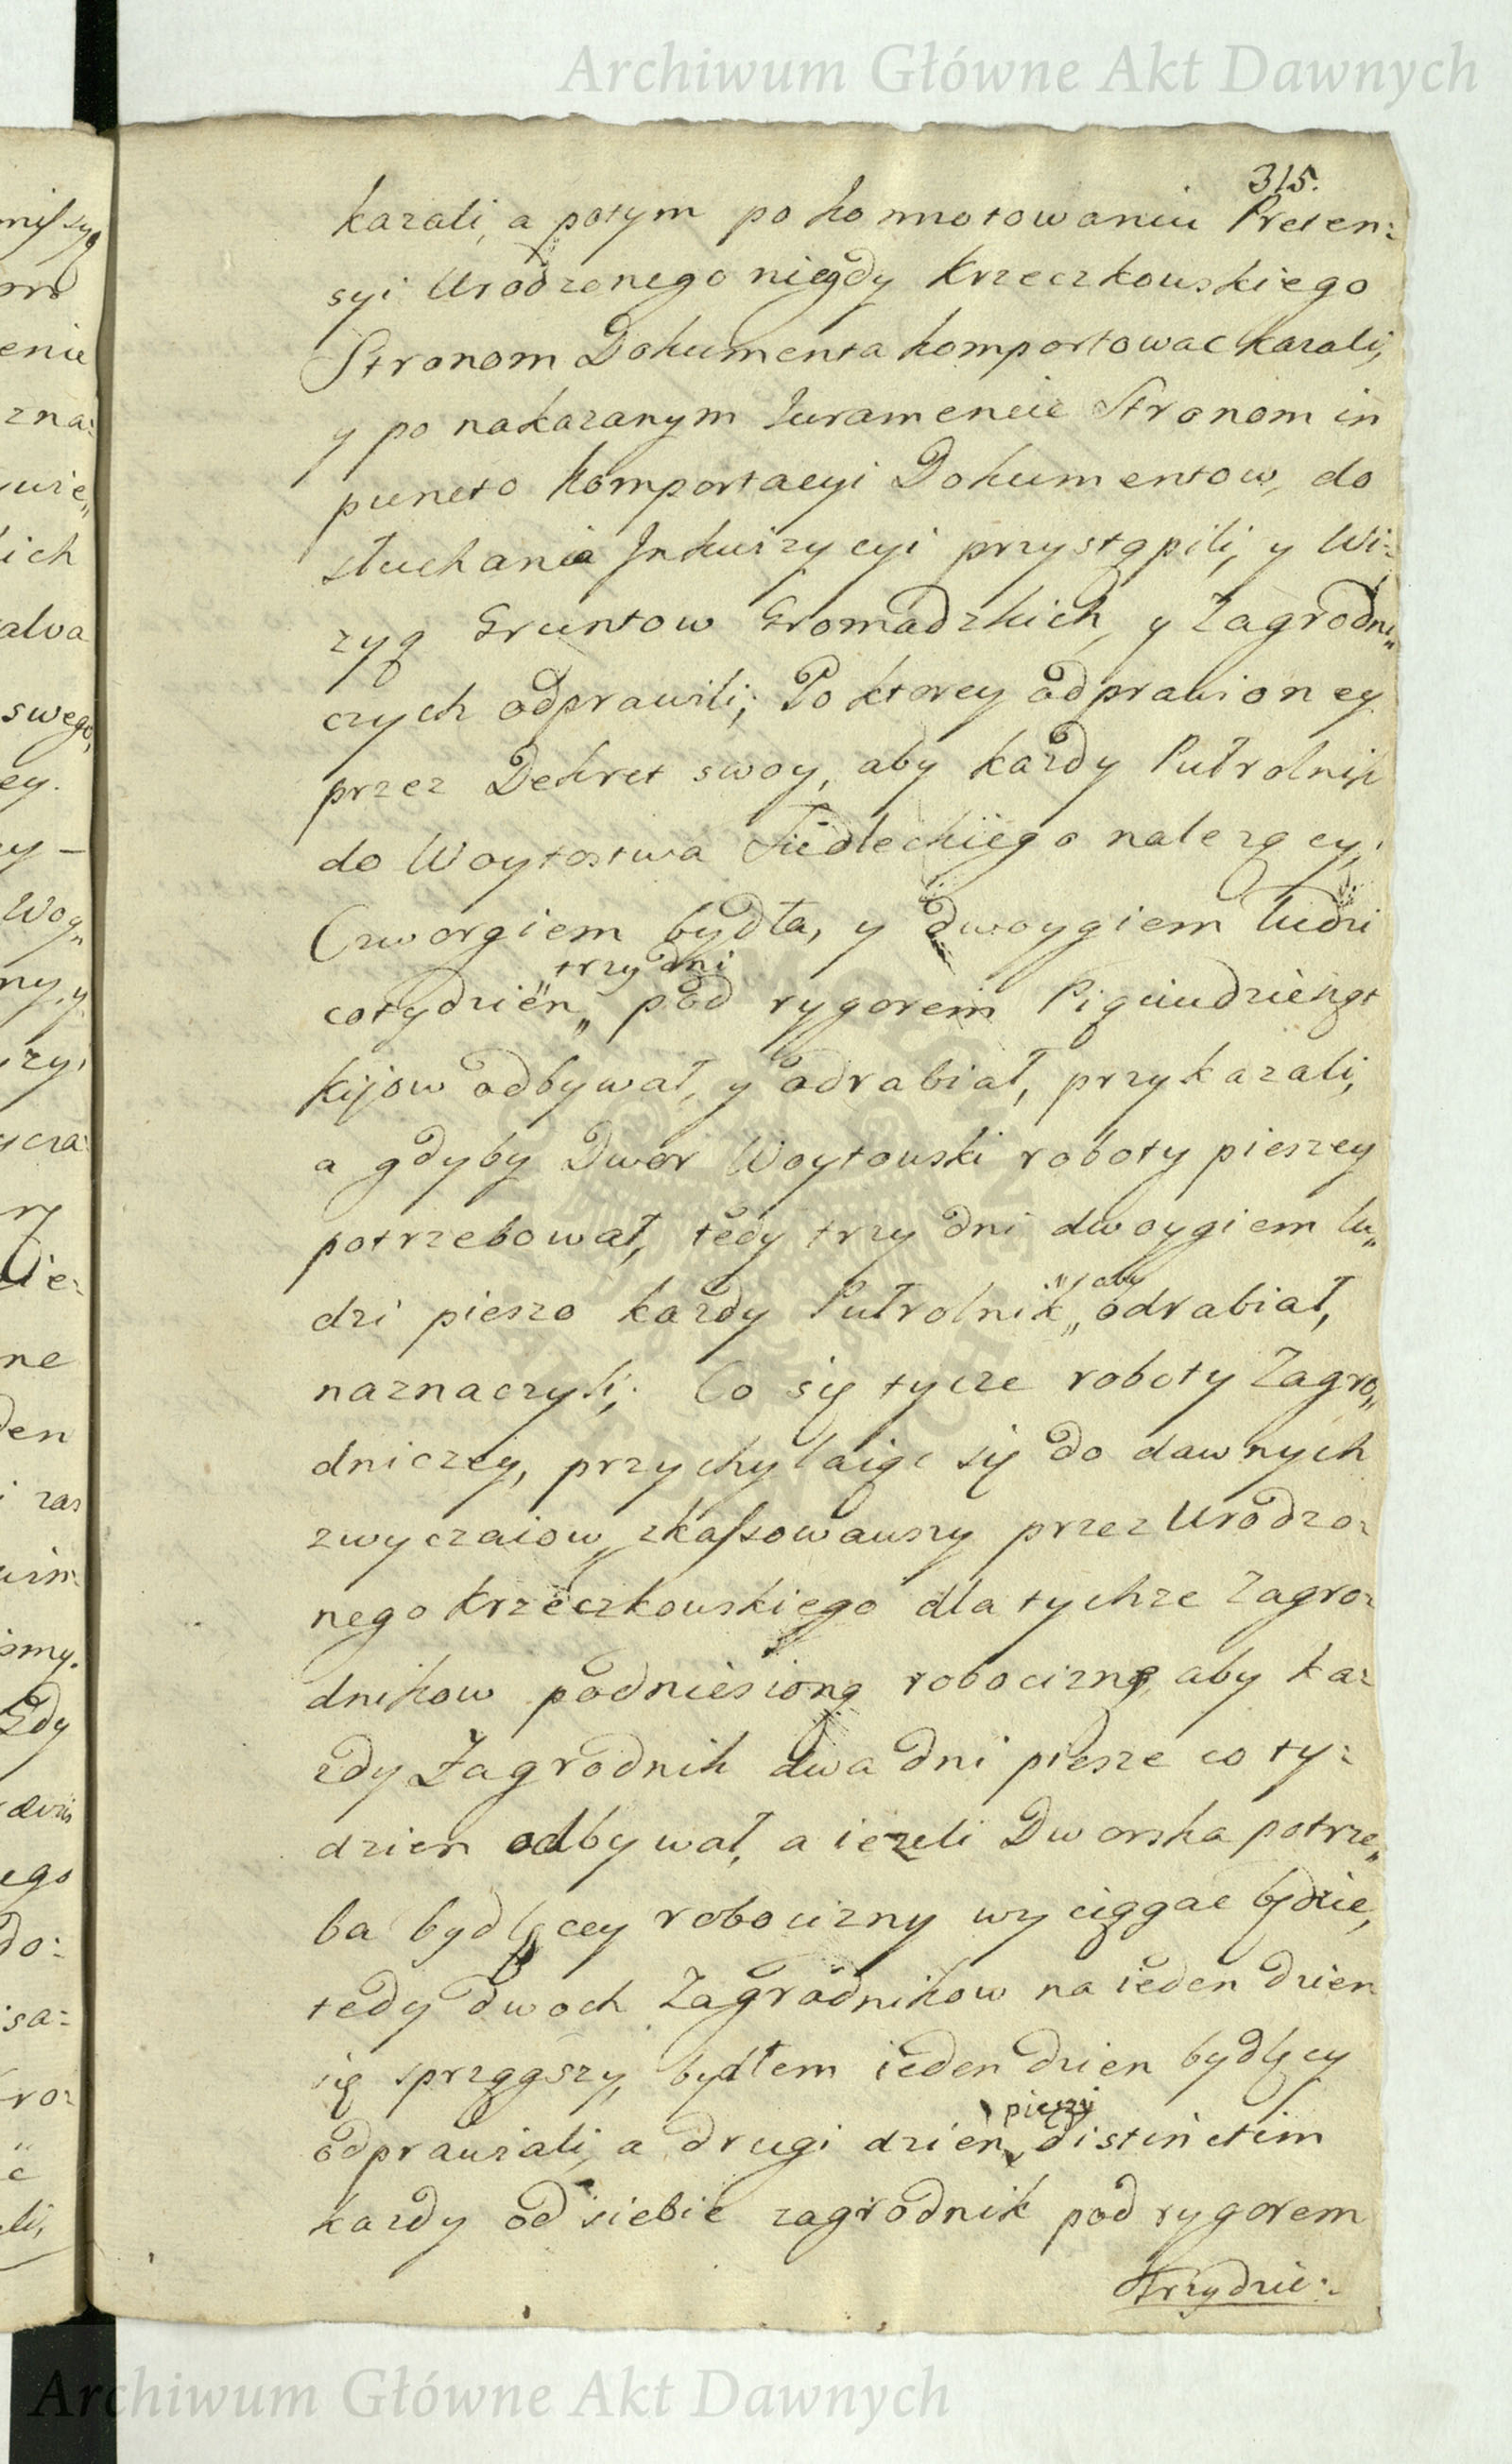 Archiwum Główne Akt Dawnych
315.
kazali, a potym po konnotowaniu Preten:
syi Urodzonego niegdy Krzeczkowskiego
Stronom Dokumenta komportowac kazali,
y po nakazanym Iuramencie Stronom in
puncto komportacyi Dokumentow, do
słuchania Inkwizycyi przystąpili, y Wi:
zyą Gruntow Gromadzkich, y Zagrodni„
czych odprawili; Po ktorey odprawioney
przez Dekret swoy, aby kazdy Pułrolnik
do Woytostwa Siedleckiego nalezący,
Czworgiem bydła, y dwoygiem ludzi
trzy dni
cotydzien„ pod rygorem Pięciudziesząt
kijow odbywał, y odrabiał, przykazali,
a gdyby Dwor Woytowski roboty pieszey
potrzebował, tedy trzy dni dwoygiem lu„
aby
dzi pieszo kazdy Pułrolnik„ odrabiał,
naznaczyli; Co się tycze roboty Zagro„
dniczey, przychylaiąc się do dawnych
zwyczaiow, zkassowawszy przez Urodzo:
nego Krzeczkowskiego dla tychze Zagro:
dnikow podniesioną robociznę, aby ka:
zdy Zagrodnik dwa dni piesze co ty:
dzien odbywał, a iezeli Dworska potrze„
ba bydlęcey robocizny wyciągac będzie,
tedy dwoch Zagrodnikow na ieden dzien
się sprzągszy, bydłem ieden dzien bydlęcy
pieszy
odprawiali, a drugi dzien distinctim
kazdy od siebie zagrodnik pod rygorem
Trzydzie:
Archiwum Główne Akt Dawnych